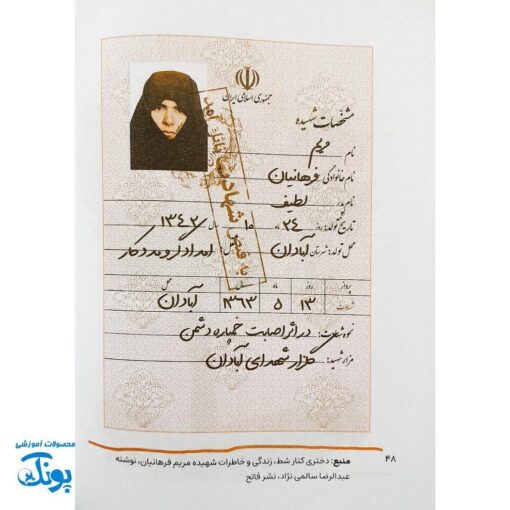 جمهوری اسلامی ایران
مشخصات شهیده
نام مریم
نام خانوادگی فرهانیان
نام پدر لطیف
تاریخ تولد: روز ۲۴ ماه ۱۰ سال ۱۳۴۲
محل تولد: شهرستان آبادان شغل: امدادگر و مددکار
پرواز روز ماه سال محل
شهادت ۱۳ ۵ ۱۳۶۳ آبادان
نحوه شهادت: در اثر اصابت خمپاره دشمن
مزار شهید: گلزار شهدای آبادان
به فیض شهادت نائل آمد
۴۸
منبع: دختری کنار شط، زندگی و خاطرات شهیده مریم فرهانیان، نوشته
عبدالرضا سالمی نژاد، نشر فاتح
محصولات آموزشی
پونک